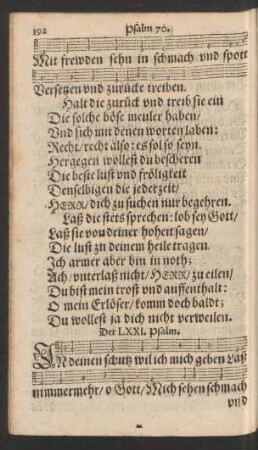 192 Psalm 70.
Mit frewden sehn in schmach vnd spott
Versetzen vnd zurücke treiben.
Halt die zurück vnd treib sie ein
Die solche böse meuler haben/
Vnd sich mit denen worten laben:
Recht/ recht also: es sol so seyn.
Hergegen wollest du bescheren
Die beste lust vnd fröligkeit
Denselbigen die jederzeit/
HERR/ dich zu suchen nur begehren.
Laß die stets sprechen: lob sey Gott/
Laß sie von deiner hoheit sagen/
Die lust zu deinem heile tragen.
Ich armer aber bin in noth;
Ach/ vnterlaß nicht/ HERR/ zu eilen/
Du bist mein trost vnd auffenthalt:
O mein Erlöser/ komm doch baldt;
Du wollest ja dich nicht verweilen.
Der LXXI. Psalm.
IN deinen schutz wil ich mich geben Laß
nimmermehr/ o Gott/ Mich sehen schmach
vnd